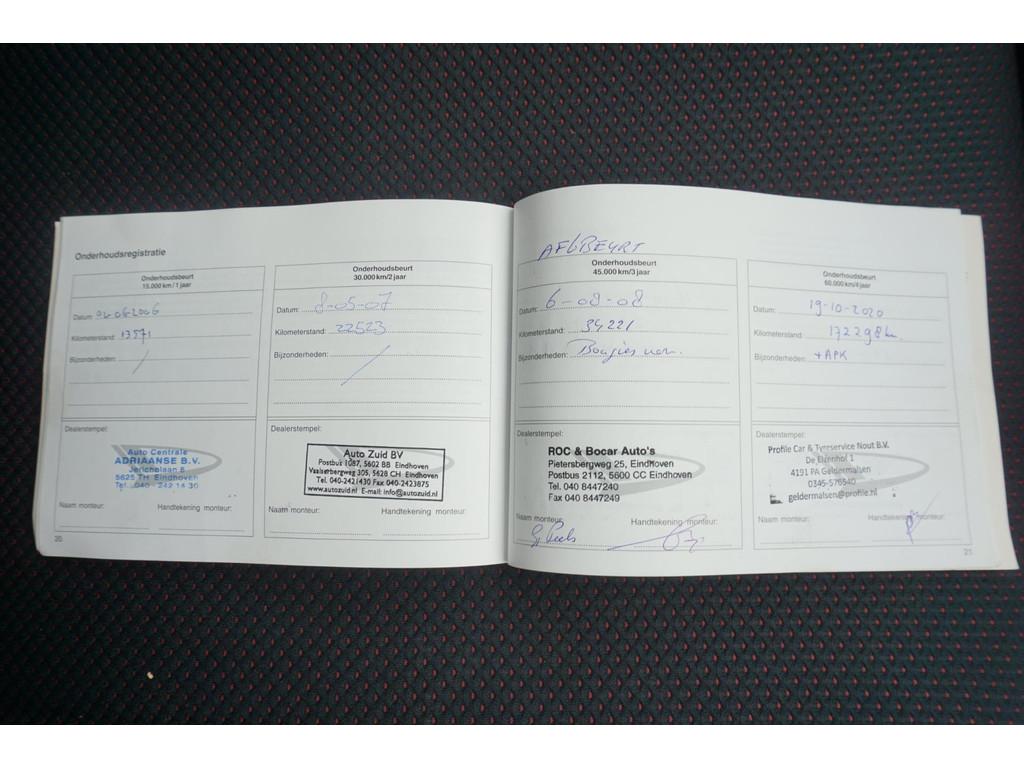 Onderhoudsregistratie
Onderhoudsbeurt
15.000 km/1 jaar
Datum: 02-06-2006
Kilometerstand: 13571
Bijzonderheden: /
Dealerstempel:
Auto Centrale
ADRIAANSE B.V.
Jericholaan 8
5625 TH Eindhoven
Tel. 040 - 242 14 30
Naam monteur:
Handtekening monteur:
20
Onderhoudsbeurt
30.000 km/2 jaar
Datum: 8-05-07
Kilometerstand: 22523
Bijzonderheden: /
Dealerstempel:
Auto Zuid BV
Postbus 1087, 5602 BB Eindhoven
Vaalserbergweg 305, 5628 CH Eindhoven
Tel. 040-2421430 Fax 040-2423875
www.autozuid.nl E-mail: info@autozuid.nl
Naam monteur:
Handtekening monteur:
AFL BEURT
Onderhoudsbeurt
45.000 km/3 jaar
Datum: 6-08-08
Kilometerstand: 34221
Bijzonderheden: Bougies ver.
Dealerstempel:
ROC & Bocar Auto's
Pietersbergweg 25, Eindhoven
Postbus 2112, 5600 CC Eindhoven
Tel. 040 8447240
Fax 040 8447249
Naam monteur:
Handtekening monteur:
Onderhoudsbeurt
60.000 km/4 jaar
Datum: 19-10-2020
Kilometerstand: 172298 km.
Bijzonderheden: + APK
Dealerstempel:
Profile Car & Tyreservice Nout B.V.
De Elzenhof 1
4191 PA Geldermalsen
0345-576540
geldermalsen@profile.nl
Naam monteur:
Handtekening monteur:
21